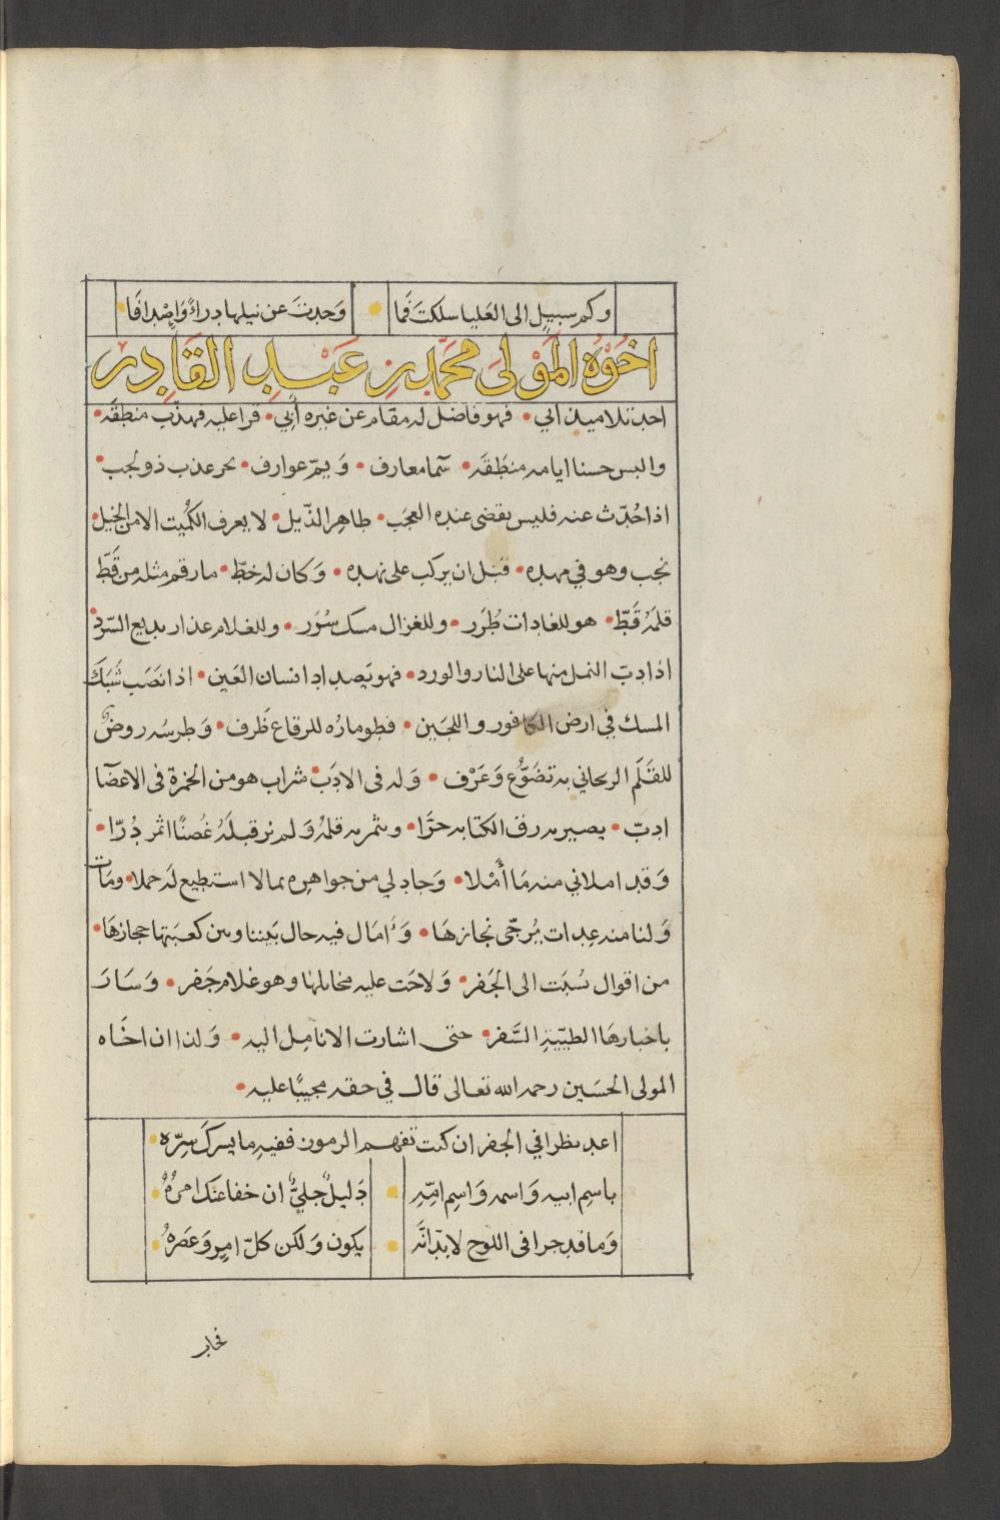 وكم سبيل الى العَليا سلكتَ فَما • وَحدتَ عن نيلها دراءً وَاصْدافَا •
اخُوْهُ المَوْلىَ محَمَّد بنِ عَبْدِ القَادِر
احد تلاميذ ابي • فهو فاضل له مقام عن غيره أبي • قرا عليه فهذّب منطقَه •
والبس حسنا ايامه منطَقَه • سما معارف • وَيمّ عوارف • بحر عذب ذو لجب •
اذا حُدّث عنه فليس يقضى عنده العجَب • طاهِر الذّيل • لا يعرف الكُميت الا من الخيل •
نجب وهو في مهده • قبل ان يركب على نهده • وَكان له خطّ • ما رقم مثله من قَطّ
قلمَهُ قَطّ • هو للغادات طُرَر • وللغزال مسك سُرَر • وللغلام عذار بديع السّرد •
اذا دبّ النمل منها على النار والورد • فهو يَصيد ابدا انسان العَين • اذا نصَب شَبَكَ
المسك في ارض الكافور واللجَين • فطومارُه للرقاع ظَرف • وَطرسُه روضٌ
للقَلَم الريحاني به تضَوُّع وَعَرْف • وَله فى الادَبْ شراب هو من الخمرة فى الاعضَا
ادبّ • يصير به رق الكتابه حرَّا • ويثمر به قلمهُ وَلم نر قبلَهُ غُصنًا اثمر دُرّا •
وَقد املاني منه مَا أمْلا • وَجاد لي من جواهره بما لا استطيع لهَ حملا • ومَات
وَلنا منه عدات يُرجّى نجازهَا • وَءامَال فيه حال بَيننا وبين كعبَتها حجازهَا •
من اقوال نسُبَت الى الجَفر • وَلاحَت عليه مخايلها وهو غلام جَفر • وَسَارَ
باخبارهَا الطيّبةِ السَّفر • حتى اشارت الانامِل اليه • وَلذا ان اخَاه
المولى الحسَين رحمه الله تعالى قال في حقه مجيبًا عليه •
اعد نظرا في الجفر ان كنت تفهم الرموز ففيهِ ما يسرك سِرّه •
باسِم ابيه وَاسمه وَاسِم امّهِ • دَليلٌ جليٌّ ان خفا عنك امرُهُ •
وَما قد جرا فى اللوح لا بدّ انَّه • يكون وَلكن كلّ امرٍ وَعَصرهُ •